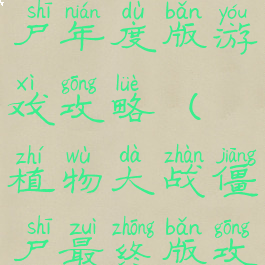 shī nián dù bǎn yóu
尸年度版游
xì gōng lüè
戏攻略（
zhí wù dà zhàn jiāng
植物大战僵
shī zuì zhōng bǎn gōng
尸最终版攻